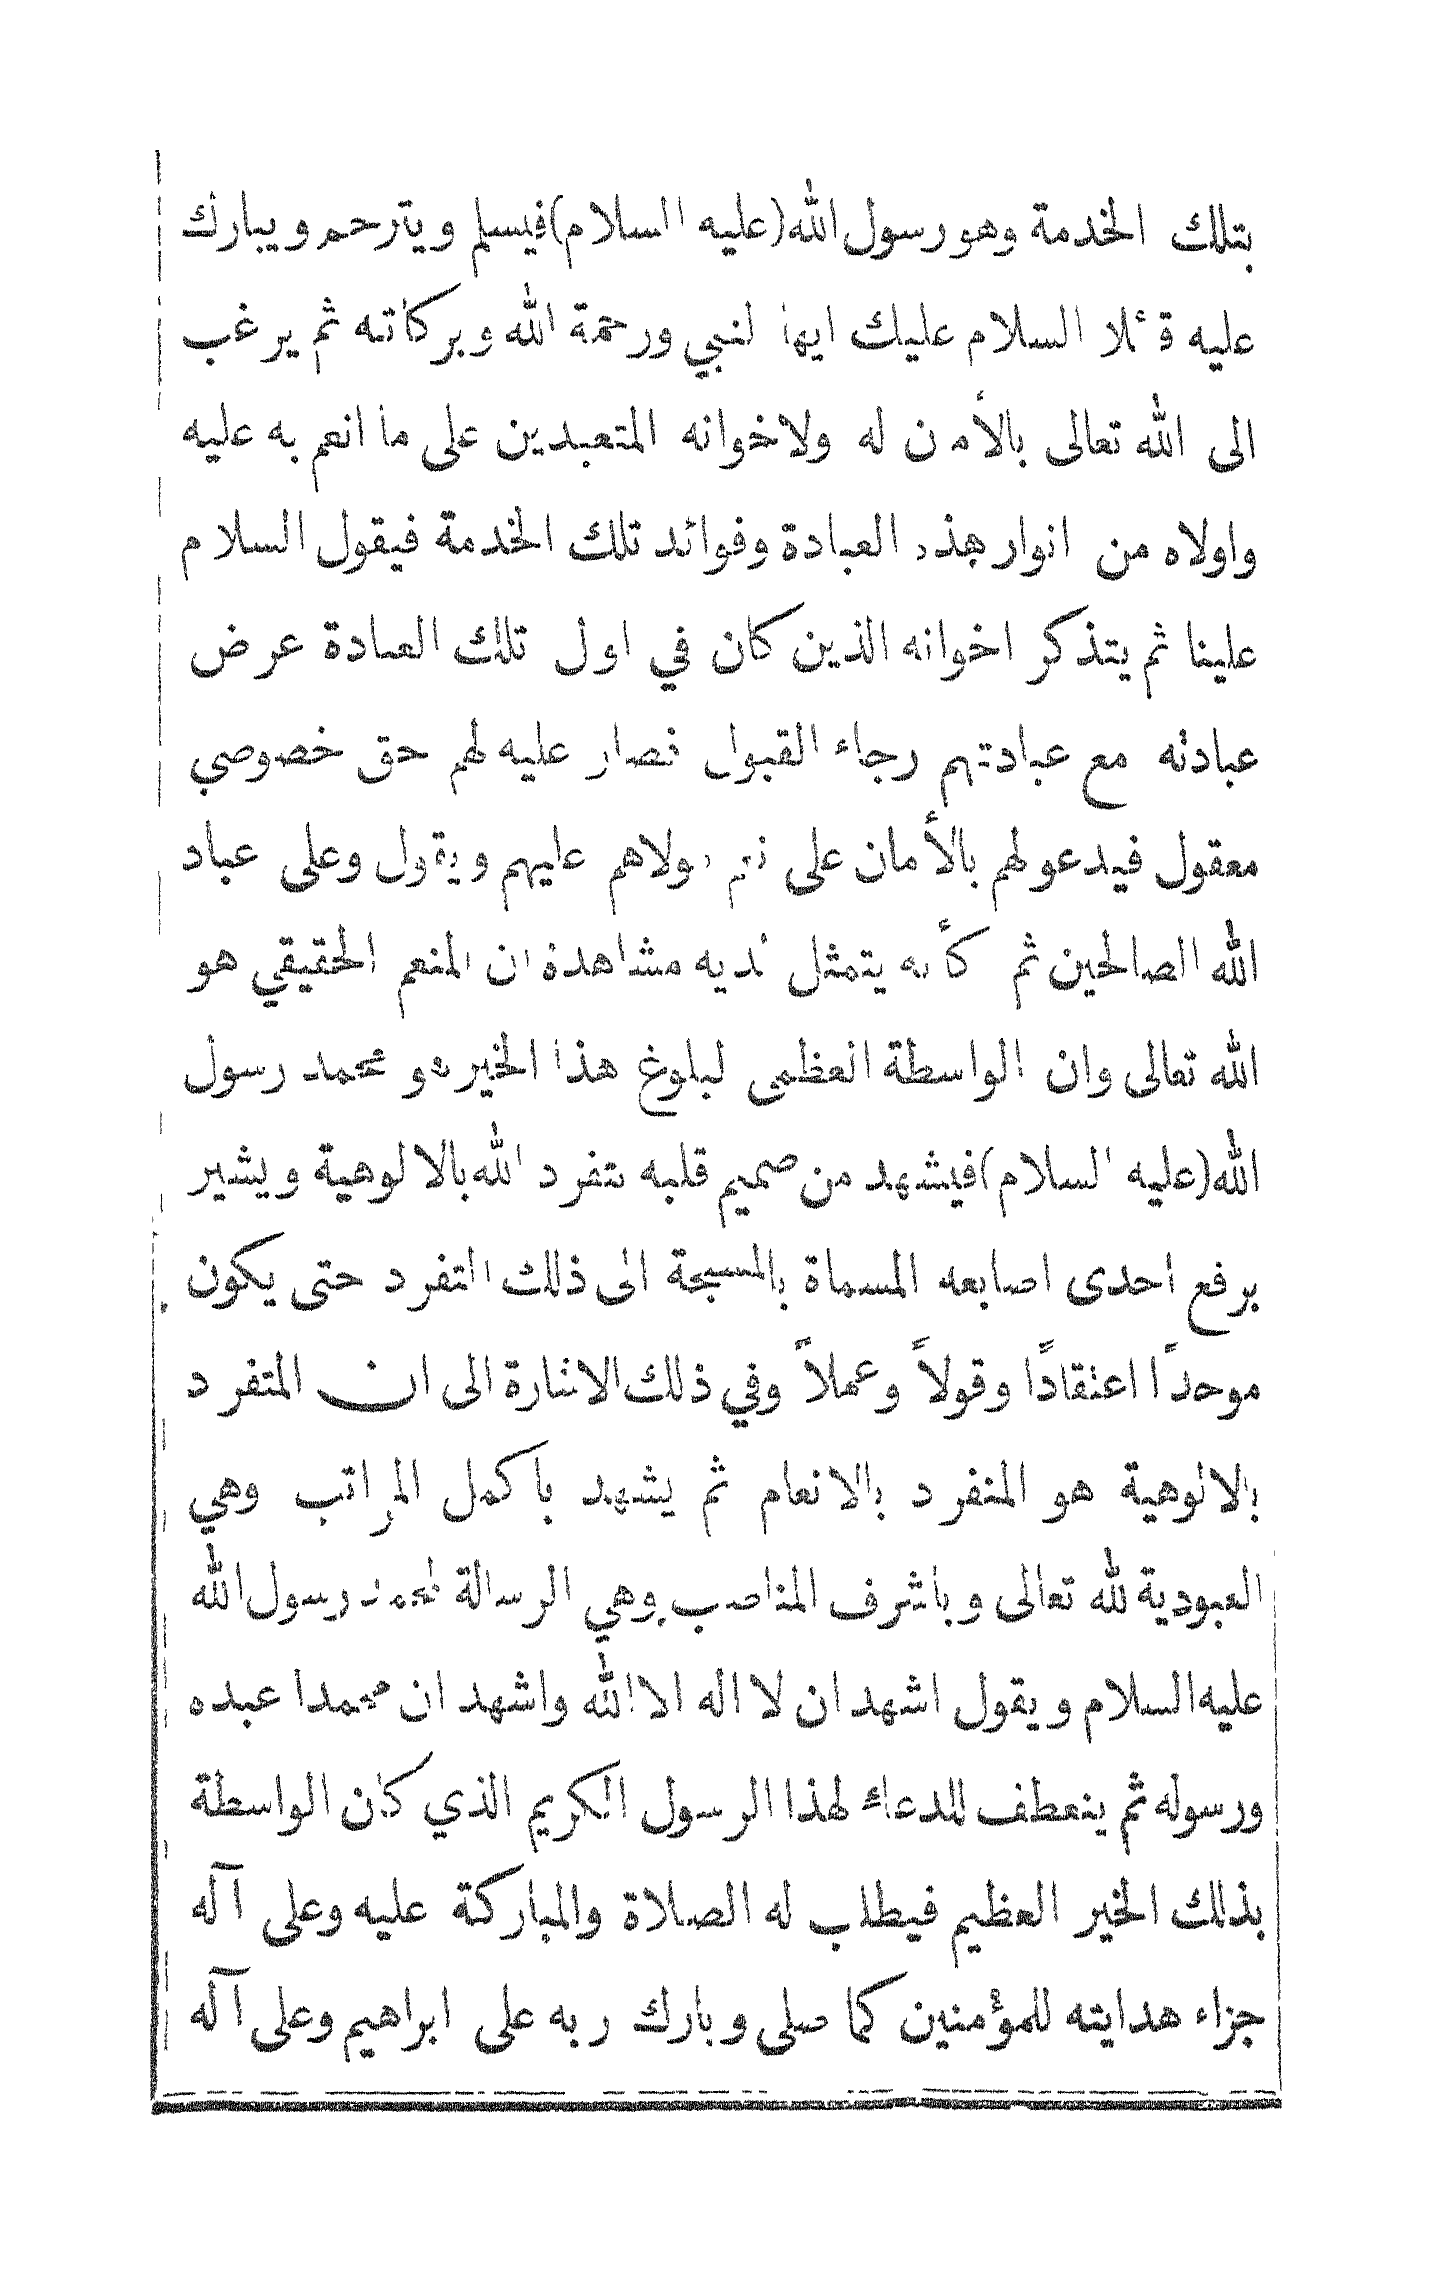 بتلك الخدمة وهو رسول الله (عليه السلام) فيسلم ويترحم ويبارك
عليه قائلا السلام عليك ايها النبي ورحمة الله وبركاته ثم يرغب
الى الله تعالى بالأمان له ولاخوانه المتعبدين على ما انعم به عليه
واولاه من انوار هذه العبادة وفوائد تلك الخدمة فيقول السلام
علينا ثم يتذكر اخوانه الذين كان في اول تلك العبادة عرض
عبادته مع عبادتهم رجاء القبول فصار عليه لهم حق خصوصي
معقول فيدعو لهم بالأمان على اولاهم عليهم ويقول وعلى عباد
الله الصالحين ثم كأنه يتمثل لديه مشاهدة ان المنعم الحقيقي هو
الله تعالى وان الواسطة العظمى لبلوغ هذا الخير هو محمد رسول
الله (عليه السلام) فيشهد من صميم قلبه بتفرد الله بالالوهية ويشير
برفع احدى اصابعه المسماة بالمسبحة الى ذلك التفرد حتى يكون
موحدًا اعتقادًا وقولاً وعملاً وفي ذلك الاشارة الى ان المتفرد
بالالوهية هو المتفرد بالانعام ثم يشهد باكمل المراتب وهي
العبودية لله تعالى وباشرف المناصب وهي الرسالة لمحمد رسول الله
عليه السلام ويقول اشهد ان لا اله الا الله واشهد ان محمدا عبده
ورسوله ثم ينعطف للدعاء لهذا الرسول الكريم الذي كان الواسطة
بذلك الخير العظيم فيطلب له الصلاة والمباركة عليه وعلى آله
جزاء هدايته للمؤمنين كما صلى وبارك ربه على ابراهيم وعلى آله